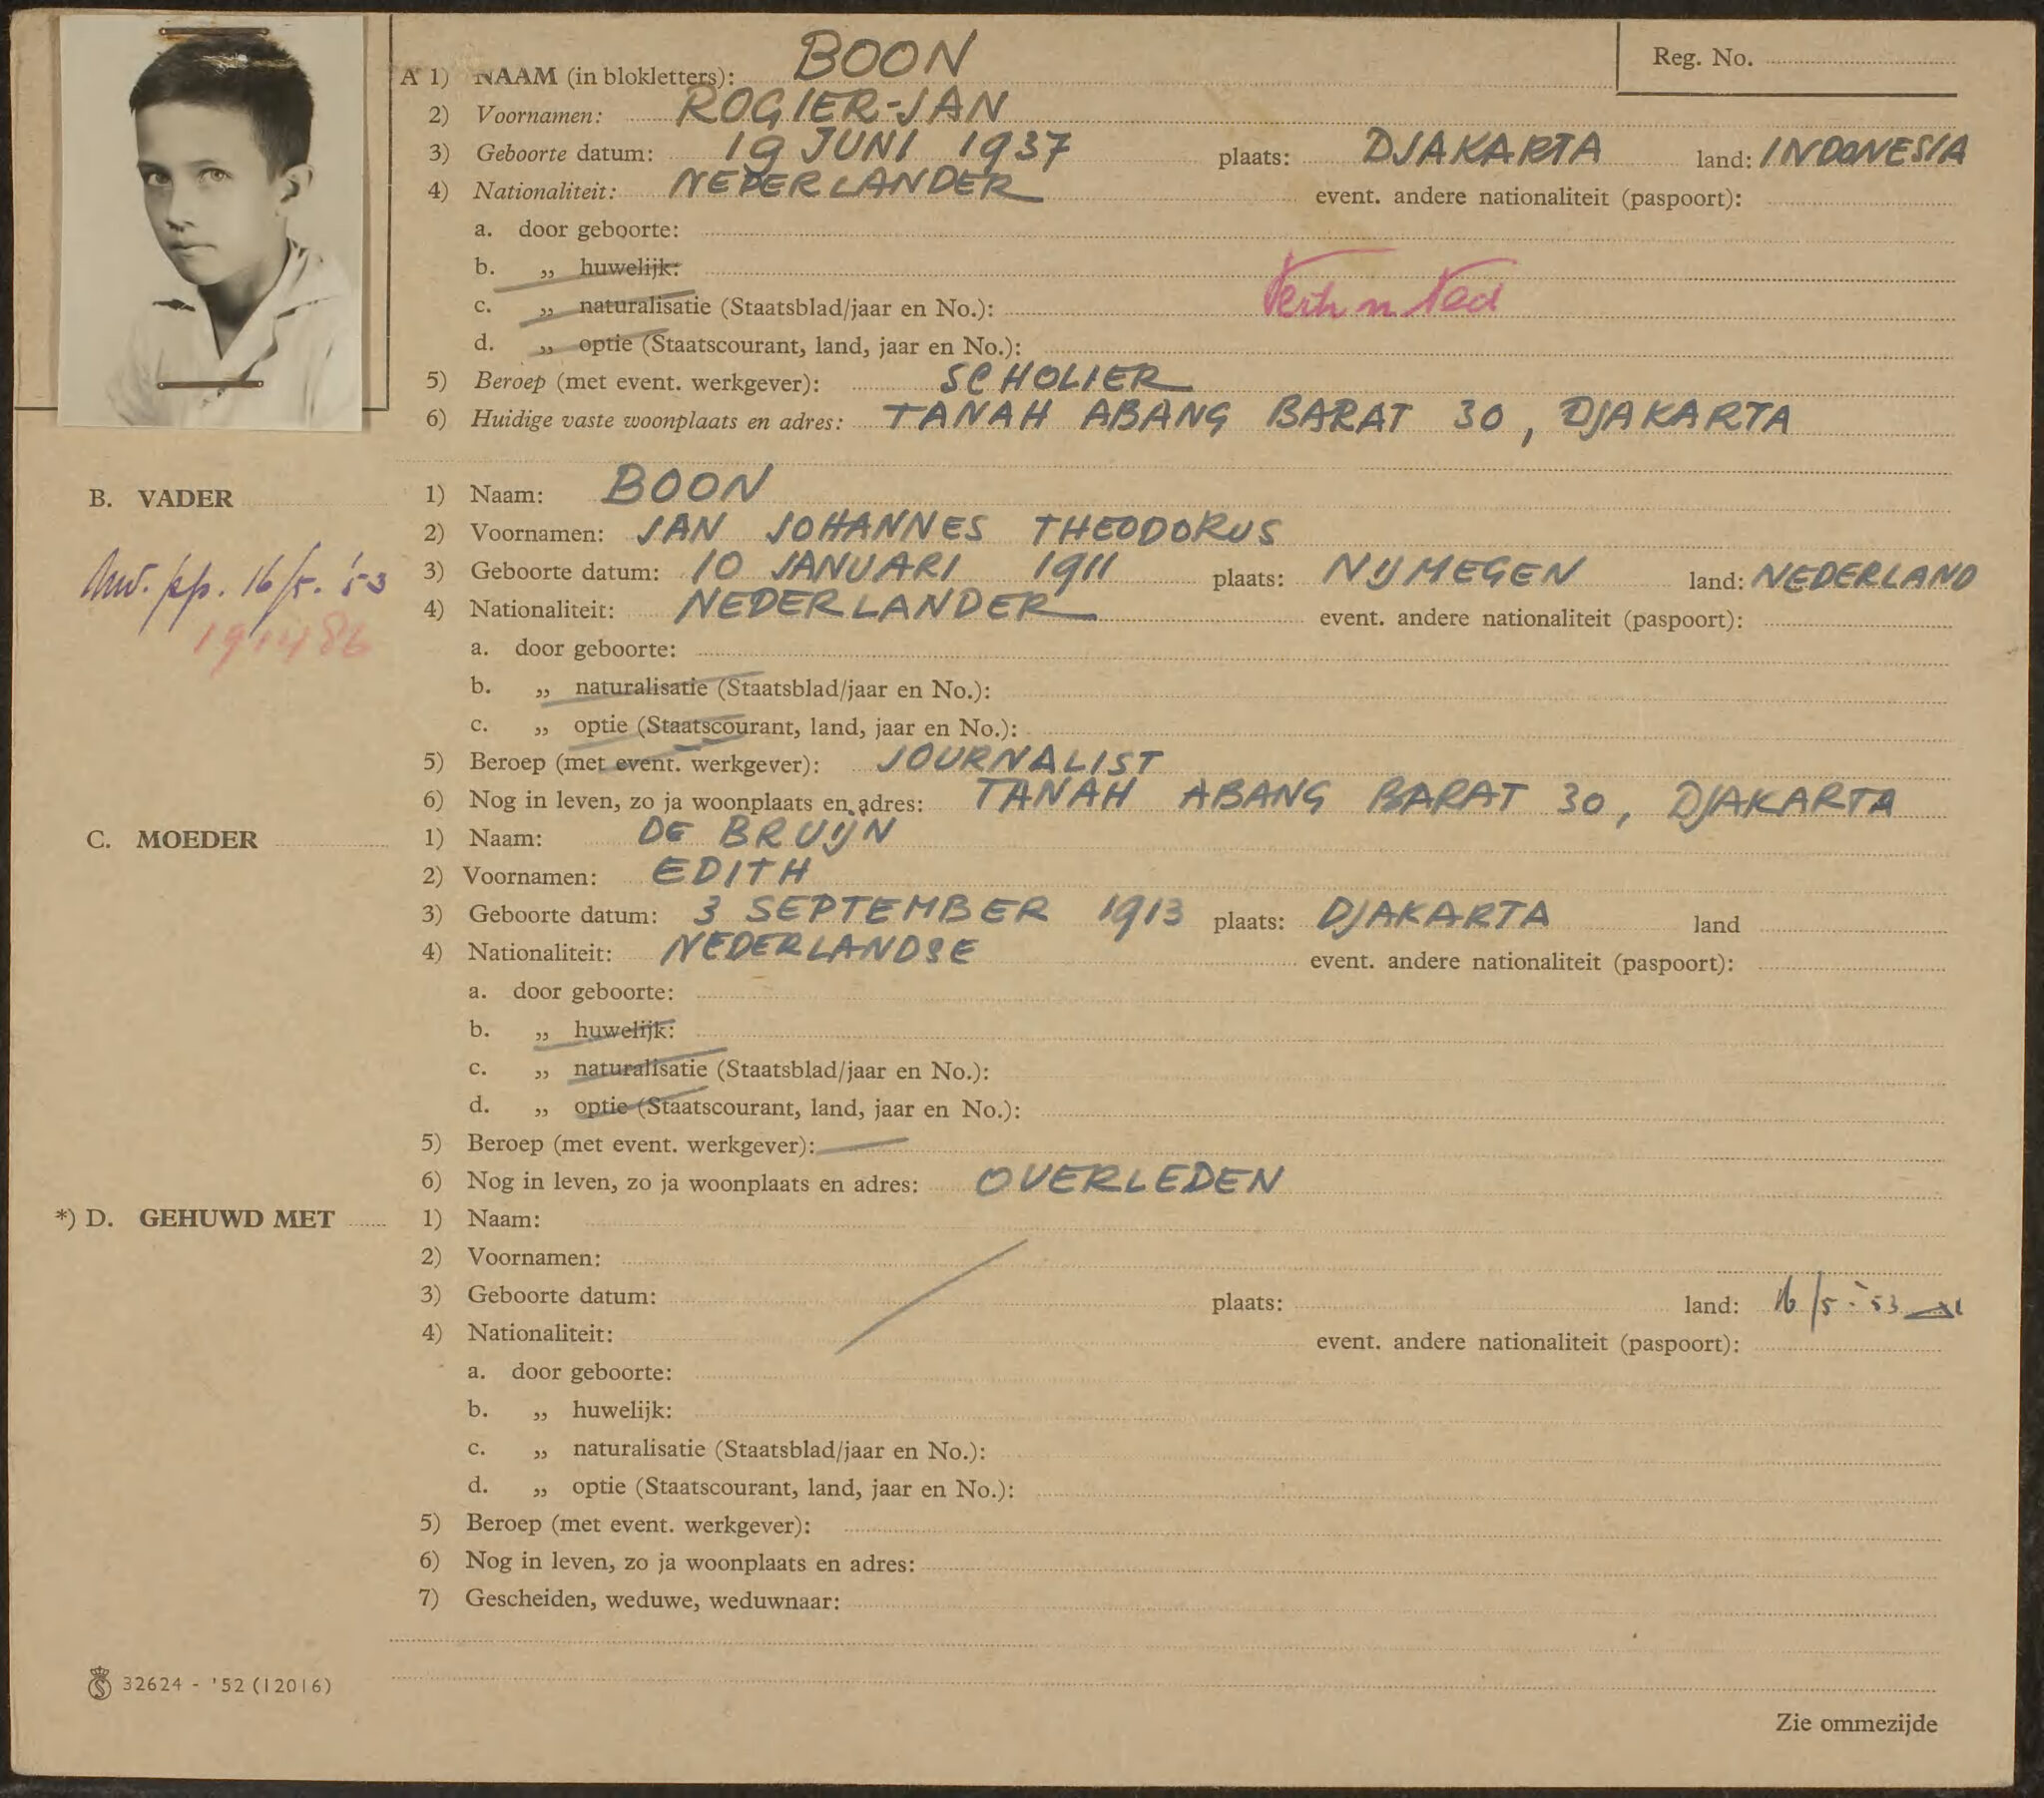 Reg. No.
A 1) NAAM (in blokletters): BOON
2) Voornamen: ROGIER-JAN
3) Geboorte datum: 19 JUNI 1937 plaats: DJAKARTA land: INDONESIA
4) Nationaliteit: NEDERLANDER event. andere nationaliteit (paspoort):
a. door geboorte:
b. ,, huwelijk:
c. ,, naturalisatie (Staatsblad/jaar en No.): Vertr n Ned
d. ,, optie (Staatscourant, land, jaar en No.):
5) Beroep (met event. werkgever): SCHOLIER
6) Huidige vaste woonplaats en adres: TANAH ABANG BARAT 30, DJAKARTA
B. VADER 1) Naam: BOON
2) Voornamen: JAN JOHANNES THEODORUS
3) Geboorte datum: 10 JANUARI 1911 plaats: NIJMEGEN land: NEDERLAND
pp. 16/5. '53
4) Nationaliteit: NEDERLANDER event. andere nationaliteit (paspoort):
a. door geboorte:
b. ,, naturalisatie (Staatsblad/jaar en No.):
c. ,, optie (Staatscourant, land, jaar en No.):
5) Beroep (met event. werkgever): JOURNALIST
6) Nog in leven, zo ja woonplaats en adres: TANAH ABANG BARAT 30, DJAKARTA
C. MOEDER 1) Naam: DE BRUIJN
2) Voornamen: EDITH
3) Geboorte datum: 3 SEPTEMBER 1913 plaats: DJAKARTA land
4) Nationaliteit: NEDERLANDSE event. andere nationaliteit (paspoort):
a. door geboorte:
b. ,, huwelijk:
c. ,, naturalisatie (Staatsblad/jaar en No.):
d. ,, optie (Staatscourant, land, jaar en No.):
5) Beroep (met event. werkgever):
6) Nog in leven, zo ja woonplaats en adres: OVERLEDEN
*) D. GEHUWD MET 1) Naam:
2) Voornamen:
3) Geboorte datum: plaats: land: 16/5-'53
4) Nationaliteit: event. andere nationaliteit (paspoort):
a. door geboorte:
b. ,, huwelijk:
c. ,, naturalisatie (Staatsblad/jaar en No.):
d. ,, optie (Staatscourant, land, jaar en No.):
5) Beroep (met event. werkgever):
6) Nog in leven, zo ja woonplaats en adres:
7) Gescheiden, weduwe, weduwnaar:
32624 - '52 (12016)
Zie ommezijde